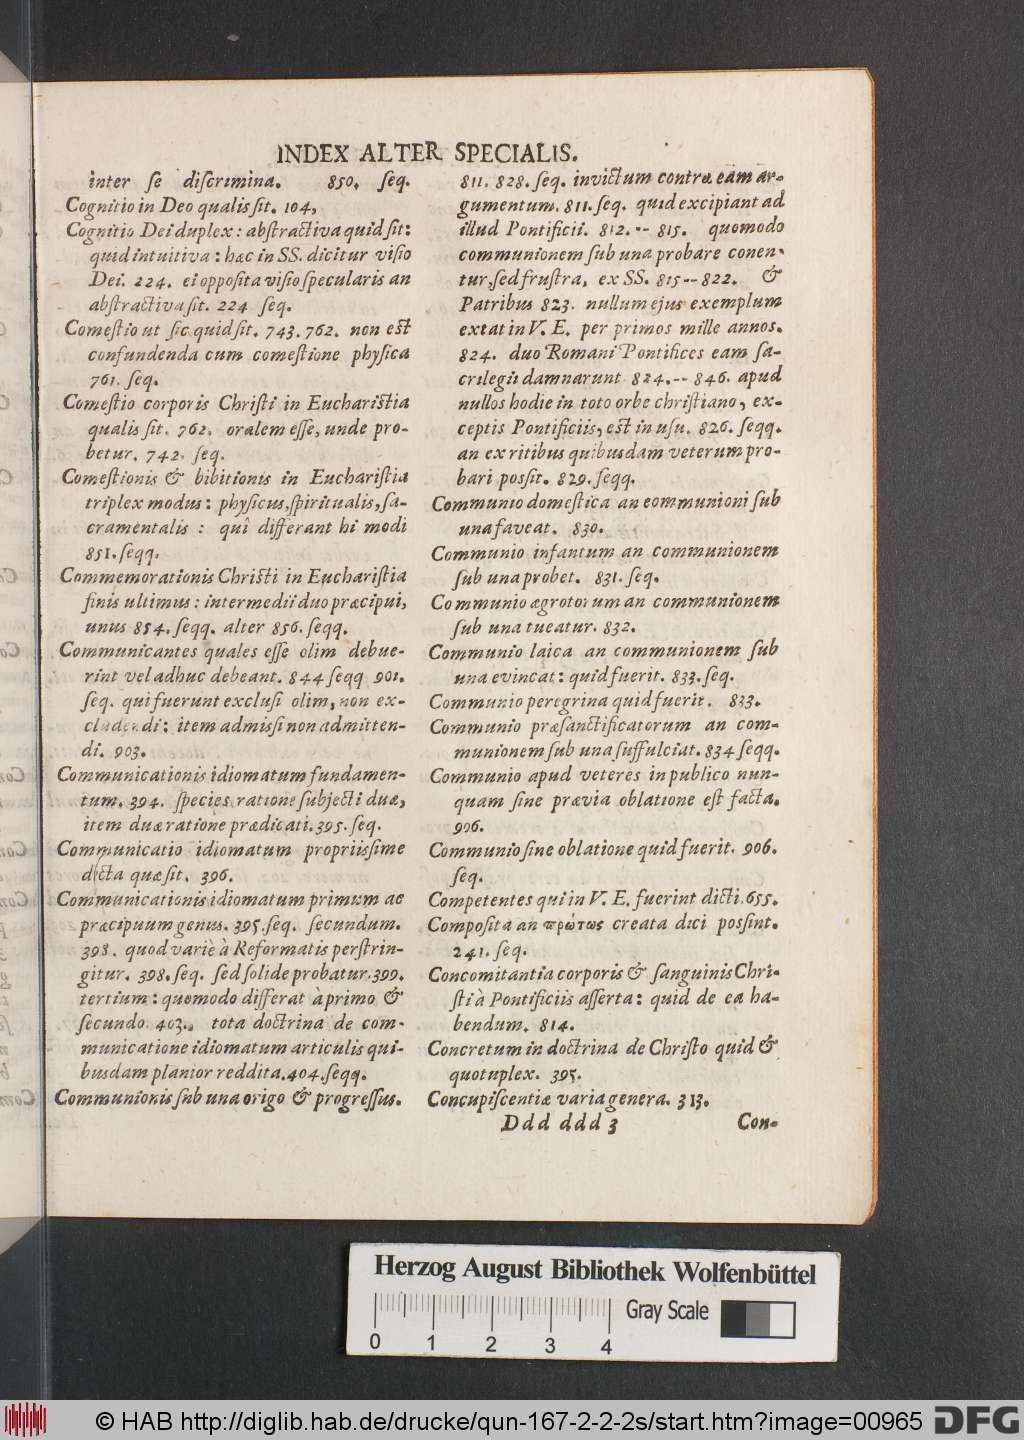 INDEX ALTER SPECIALIS.
inter se discrimina. 850. seq.
Cognitio in Deo qualis sit. 104,
Cognitio Dei duplex: abstractiva quid sit:
quid intuitiva: hæc in SS. dicitur visio
Dei. 224. ei opposita visio specularis an
abstractiva sit. 224 seq.
Comestio ut sic quid sit. 743. 762. non est
confundenda cum comestione physica
761. seq.
Comestio corporis Christi in Eucharistia
qualis sit. 762. oralem esse, unde pro-
betur. 742. seq.
Comestionis & bibitionis in Eucharistia
triplex modus: physicus, spiritualis, sa-
cramentalis: quî differant hi modi
851. seqq.
Commemorationis Christi in Eucharistia
finis ultimus: intermedii duo præcipui,
unus 854. seqq. alter 856. seqq.
Communicantes quales esse olim debue-
rint vel adhuc debeant. 844 seqq 901.
seq. qui fuerunt exclusi olim, non ex-
cludendi: item admissi non admitten-
di. 903.
Communicationis idiomatum fundamen-
tum. 394. species ratione subjecti duæ,
item duæ ratione prædicati. 395. seq.
Communicatio idiomatum propriissime
dicta quæ sit. 396.
Communicationis idiomatum primum ac
præcipuum genus. 395. seq. secundum.
398. quod variè à Reformatis perstrin-
gitur. 398. seq. sed solide probatur. 399.
tertium: quomodo differat à primo &
secundo 403., tota doctrina de com-
municatione idiomatum articulis qui-
busdam planior reddita. 404. seqq.
Communionis sub una origo & progressus.
811. 828. seq. invictum contra eam ar-
gumentum. 811. seq. quid excipiant ad
illud Pontificii. 812. -- 815. quomodo
communionem sub una probare conen-
tur, sed frustra, ex SS. 815 -- 822. &
Patribus 823. nullum ejus exemplum
extat in V. E. per primos mille annos.
824. duo Romani Pontifices eam sa-
crilegii damnarunt 824. -- 846. apud
nullos hodie in toto orbe christiano, ex-
ceptis Pontificiis, est in usu. 826. seqq.
an ex ritibus quibusdam veterum pro-
bari possit. 829. seqq.
Communio domestica an eommunioni sub
una faveat. 830.
Communio infantum an communionem
sub una probet. 831. seq.
Communio ægrotorum an communionem
sub una tueatur. 832.
Communio laica an communionem sub
una evincat: quid fuerit. 833. seq.
Communio peregrina quid fuerit. 833.
Communio præsanctificatorum an com-
munionem sub una suffulciat. 834 seqq.
Communio apud veteres in publico nun-
quam sine prævia oblatione est facta.
906.
Communio sine oblatione quid fuerit. 906.
seq.
Competentes qui in V. E. fuerint dicti. 655.
Composita an πρώτως creata dici possint.
241. seq.
Concomitantia corporis & sanguinis Chri-
sti à Pontificiis asserta: quid de ea ha-
bendum. 814.
Concretum in doctrina de Christo quid &
quotuplex. 395.
Concupiscentiæ varia genera. 313.
Ddd ddd 3 Con-
Herzog August Bibliothek Wolfenbüttel
Gray Scale
0 1 2 3 4
© HAB http://diglib.hab.de/drucke/qun-167-2-2-2s/start.htm?image=00965 DFG